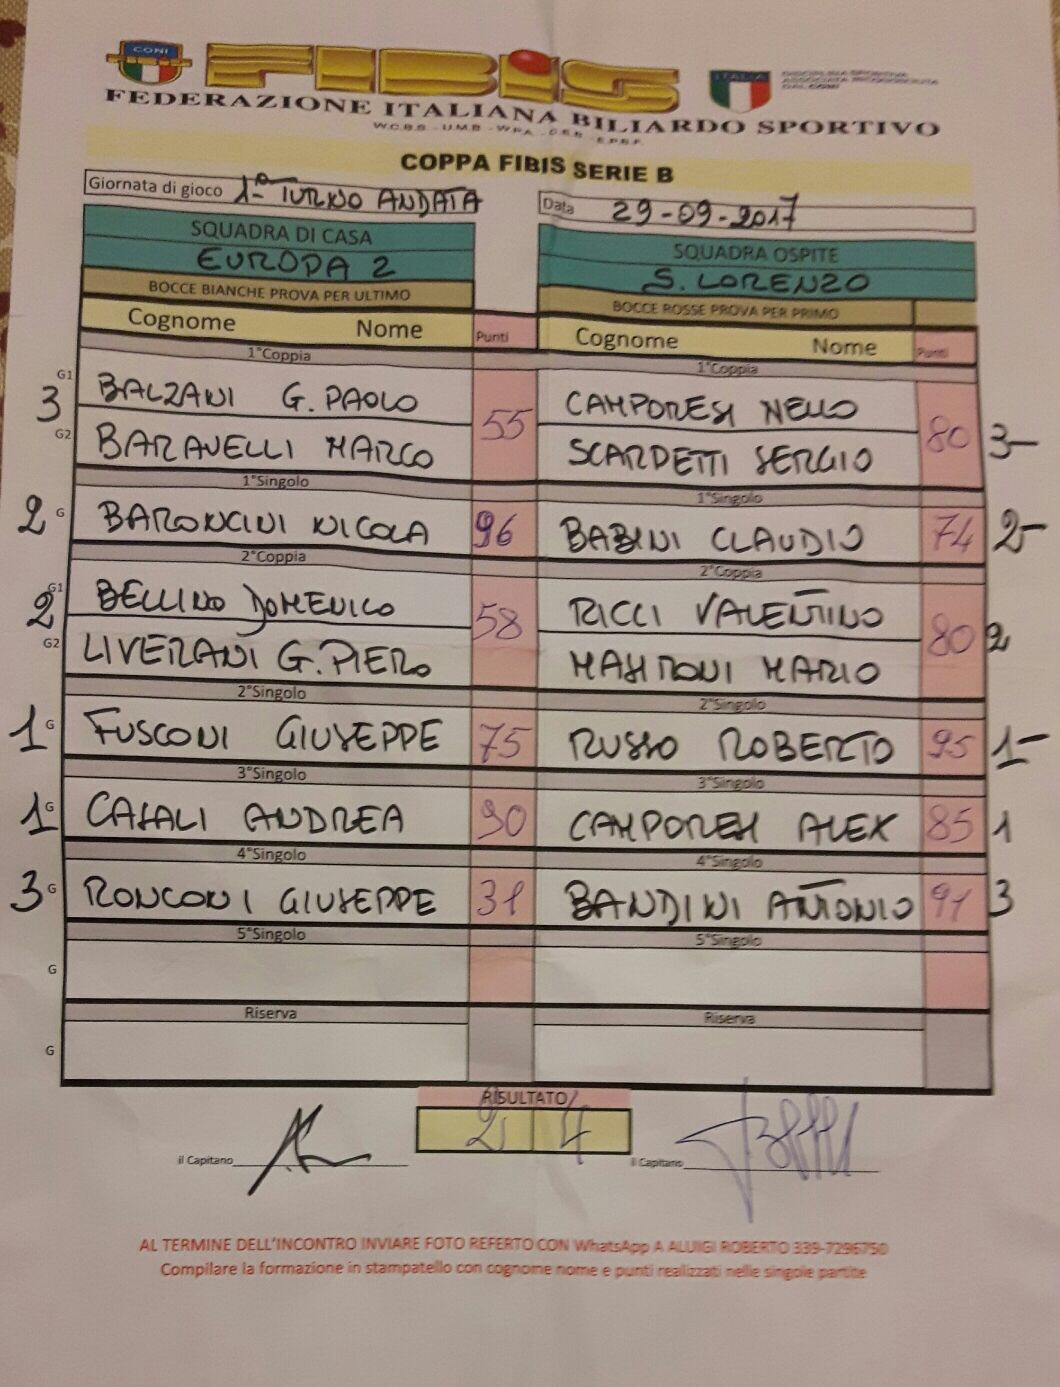 CONI
FIBIS
ITALIA
DISCIPLINA SPORTIVA
ASSOCIATA RICONOSCIUTA
DAL CONI
FEDERAZIONE ITALIANA BILIARDO SPORTIVO
W.C.B.S - U.M.B - W.P.A -
COPPA FIBIS SERIE B
Giornata di gioco 1ª TURNO ANDATA
Data 29-09-2017
SQUADRA DI CASA
EUROPA 2
SQUADRA OSPITE
S. LORENZO
BOCCE BIANCHE PROVA PER ULTIMO
BOCCE ROSSE PROVA PER PRIMO
Cognome Nome Punti Cognome Nome Punti
1°Coppia 1°Coppia
G1 BALZANI G. PAOLO CAMPORESI NELLO
3 55 80 3-
G2 BARAVELLI MARCO SCARDETTI SERGIO
1°Singolo 1°Singolo
2 G BARONCINI NICOLA 96 BABINI CLAUDIO 74 2-
2°Coppia 2°Coppia
G1 BELLINO DOMENICO RICCI VALENTINO
2 58 80 2
G2 LIVERANI G. PIERO MARIO
2°Singolo 2°Singolo
1 G FUSCONI GIUSEPPE 75 RUSSO ROBERTO 95 1-
3°Singolo 3°Singolo
1 G CASALI ANDREA 90 CAMPORESI ALEX 85 1
4°Singolo 4°Singolo
3 G RONCONI GIUSEPPE 31 BANDINI ANTONIO 91 3
5°Singolo 5°Singolo
G
Riserva Riserva
G
RISULTATO
2 4
il Capitano il Capitano
AL TERMINE DELL'INCONTRO INVIARE FOTO REFERTO CON WhatsApp A ALUIGI ROBERTO 339-7296750
Compilare la formazione in stampatello con cognome nome e punti realizzati nelle singole partite